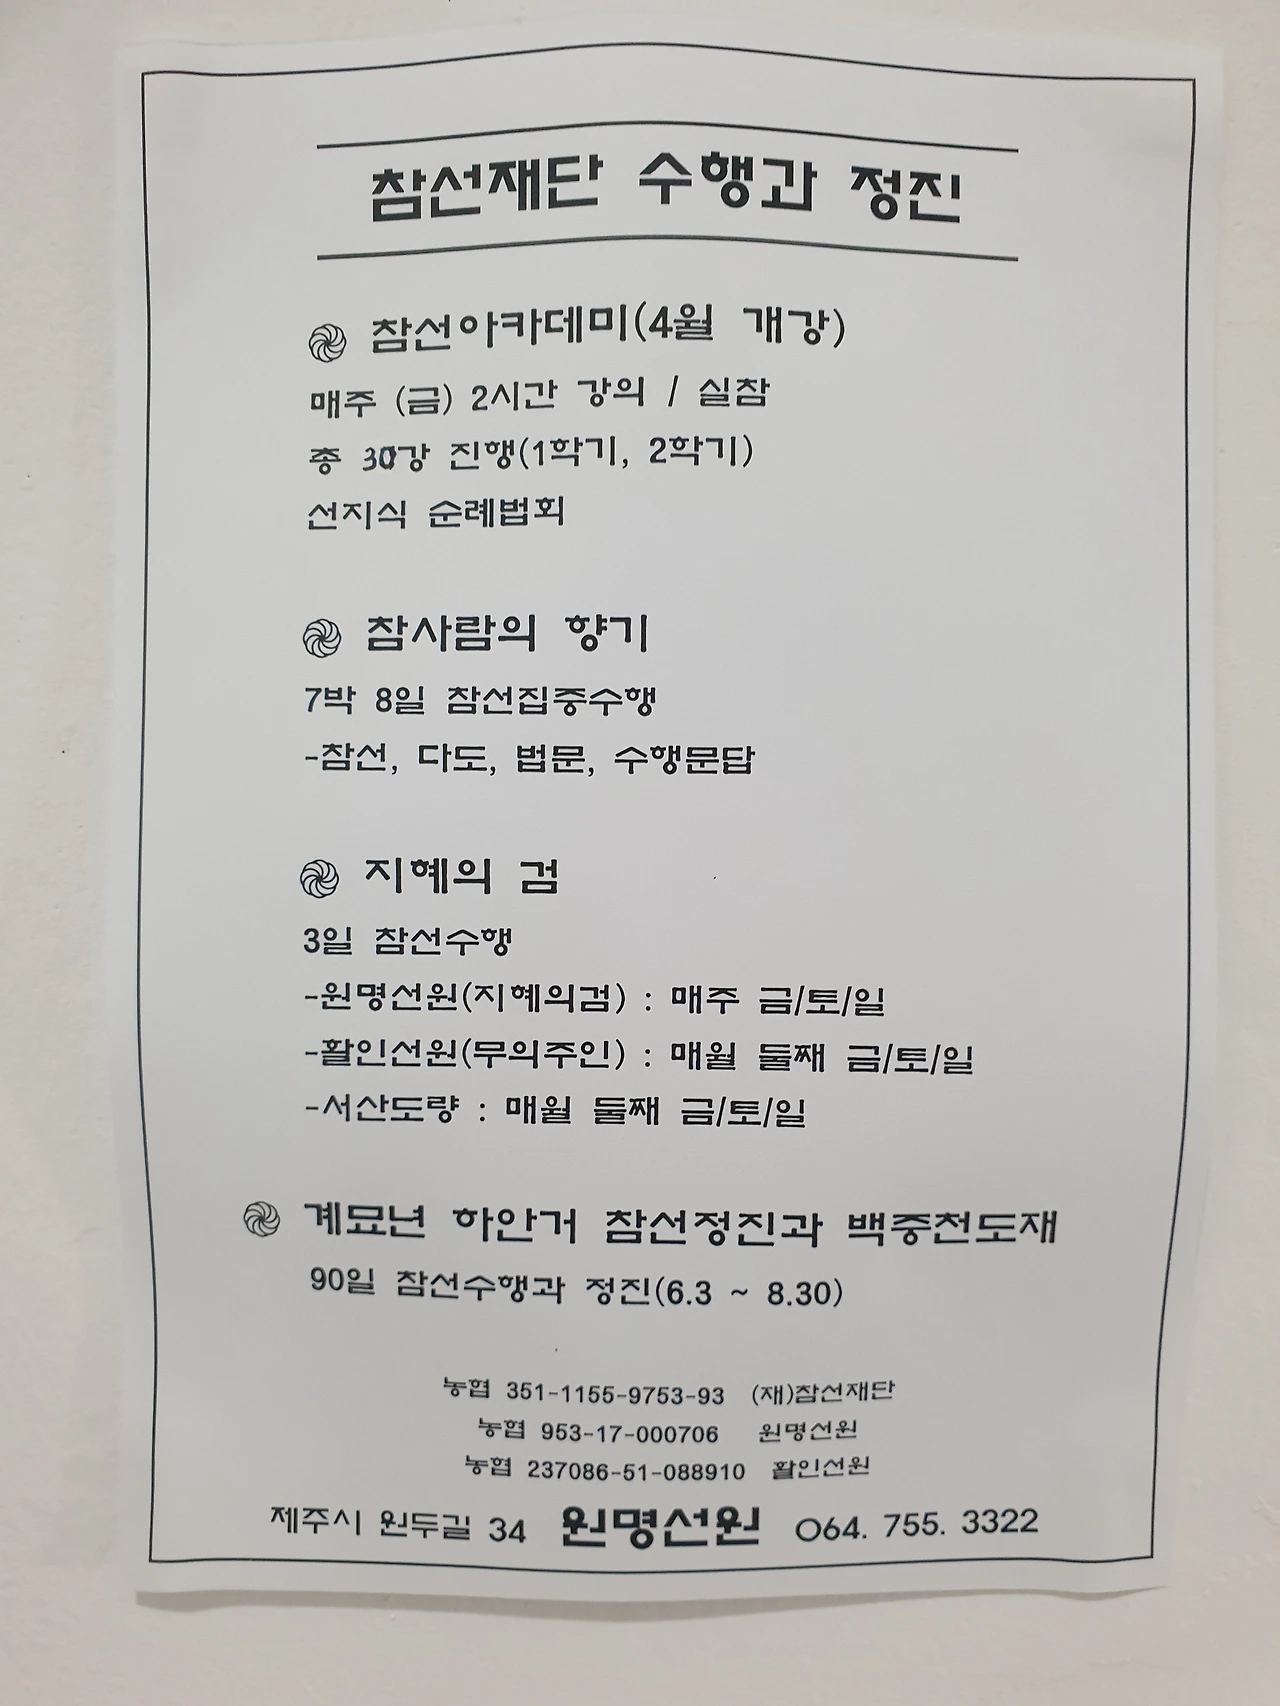 참선재단 수행과 정진
참선아카데미(4월 개강)
매주 (금) 2시간 강의 / 실참
총 30강 진행(1학기, 2학기)
선지식 순례법회
참사람의 향기
7박 8일 참선집중수행
-참선, 다도, 법문, 수행문답
지혜의 검
3일 참선수행
-원명선원(지혜의검) : 매주 금/토/일
-활인선원(무의주인) : 매월 둘째 금/토/일
-서산도량 : 매월 둘째 금/토/일
계묘년 하안거 참선정진과 백중천도재
90일 참선수행과 정진(6.3 ~ 8.30)
농협 351-1155-9753-93 (재)참선재단
농협 953-17-000706 원명선원
농협 237086-51-088910 활인선원
제주시 원두길 34 원명선원 064. 755. 3322